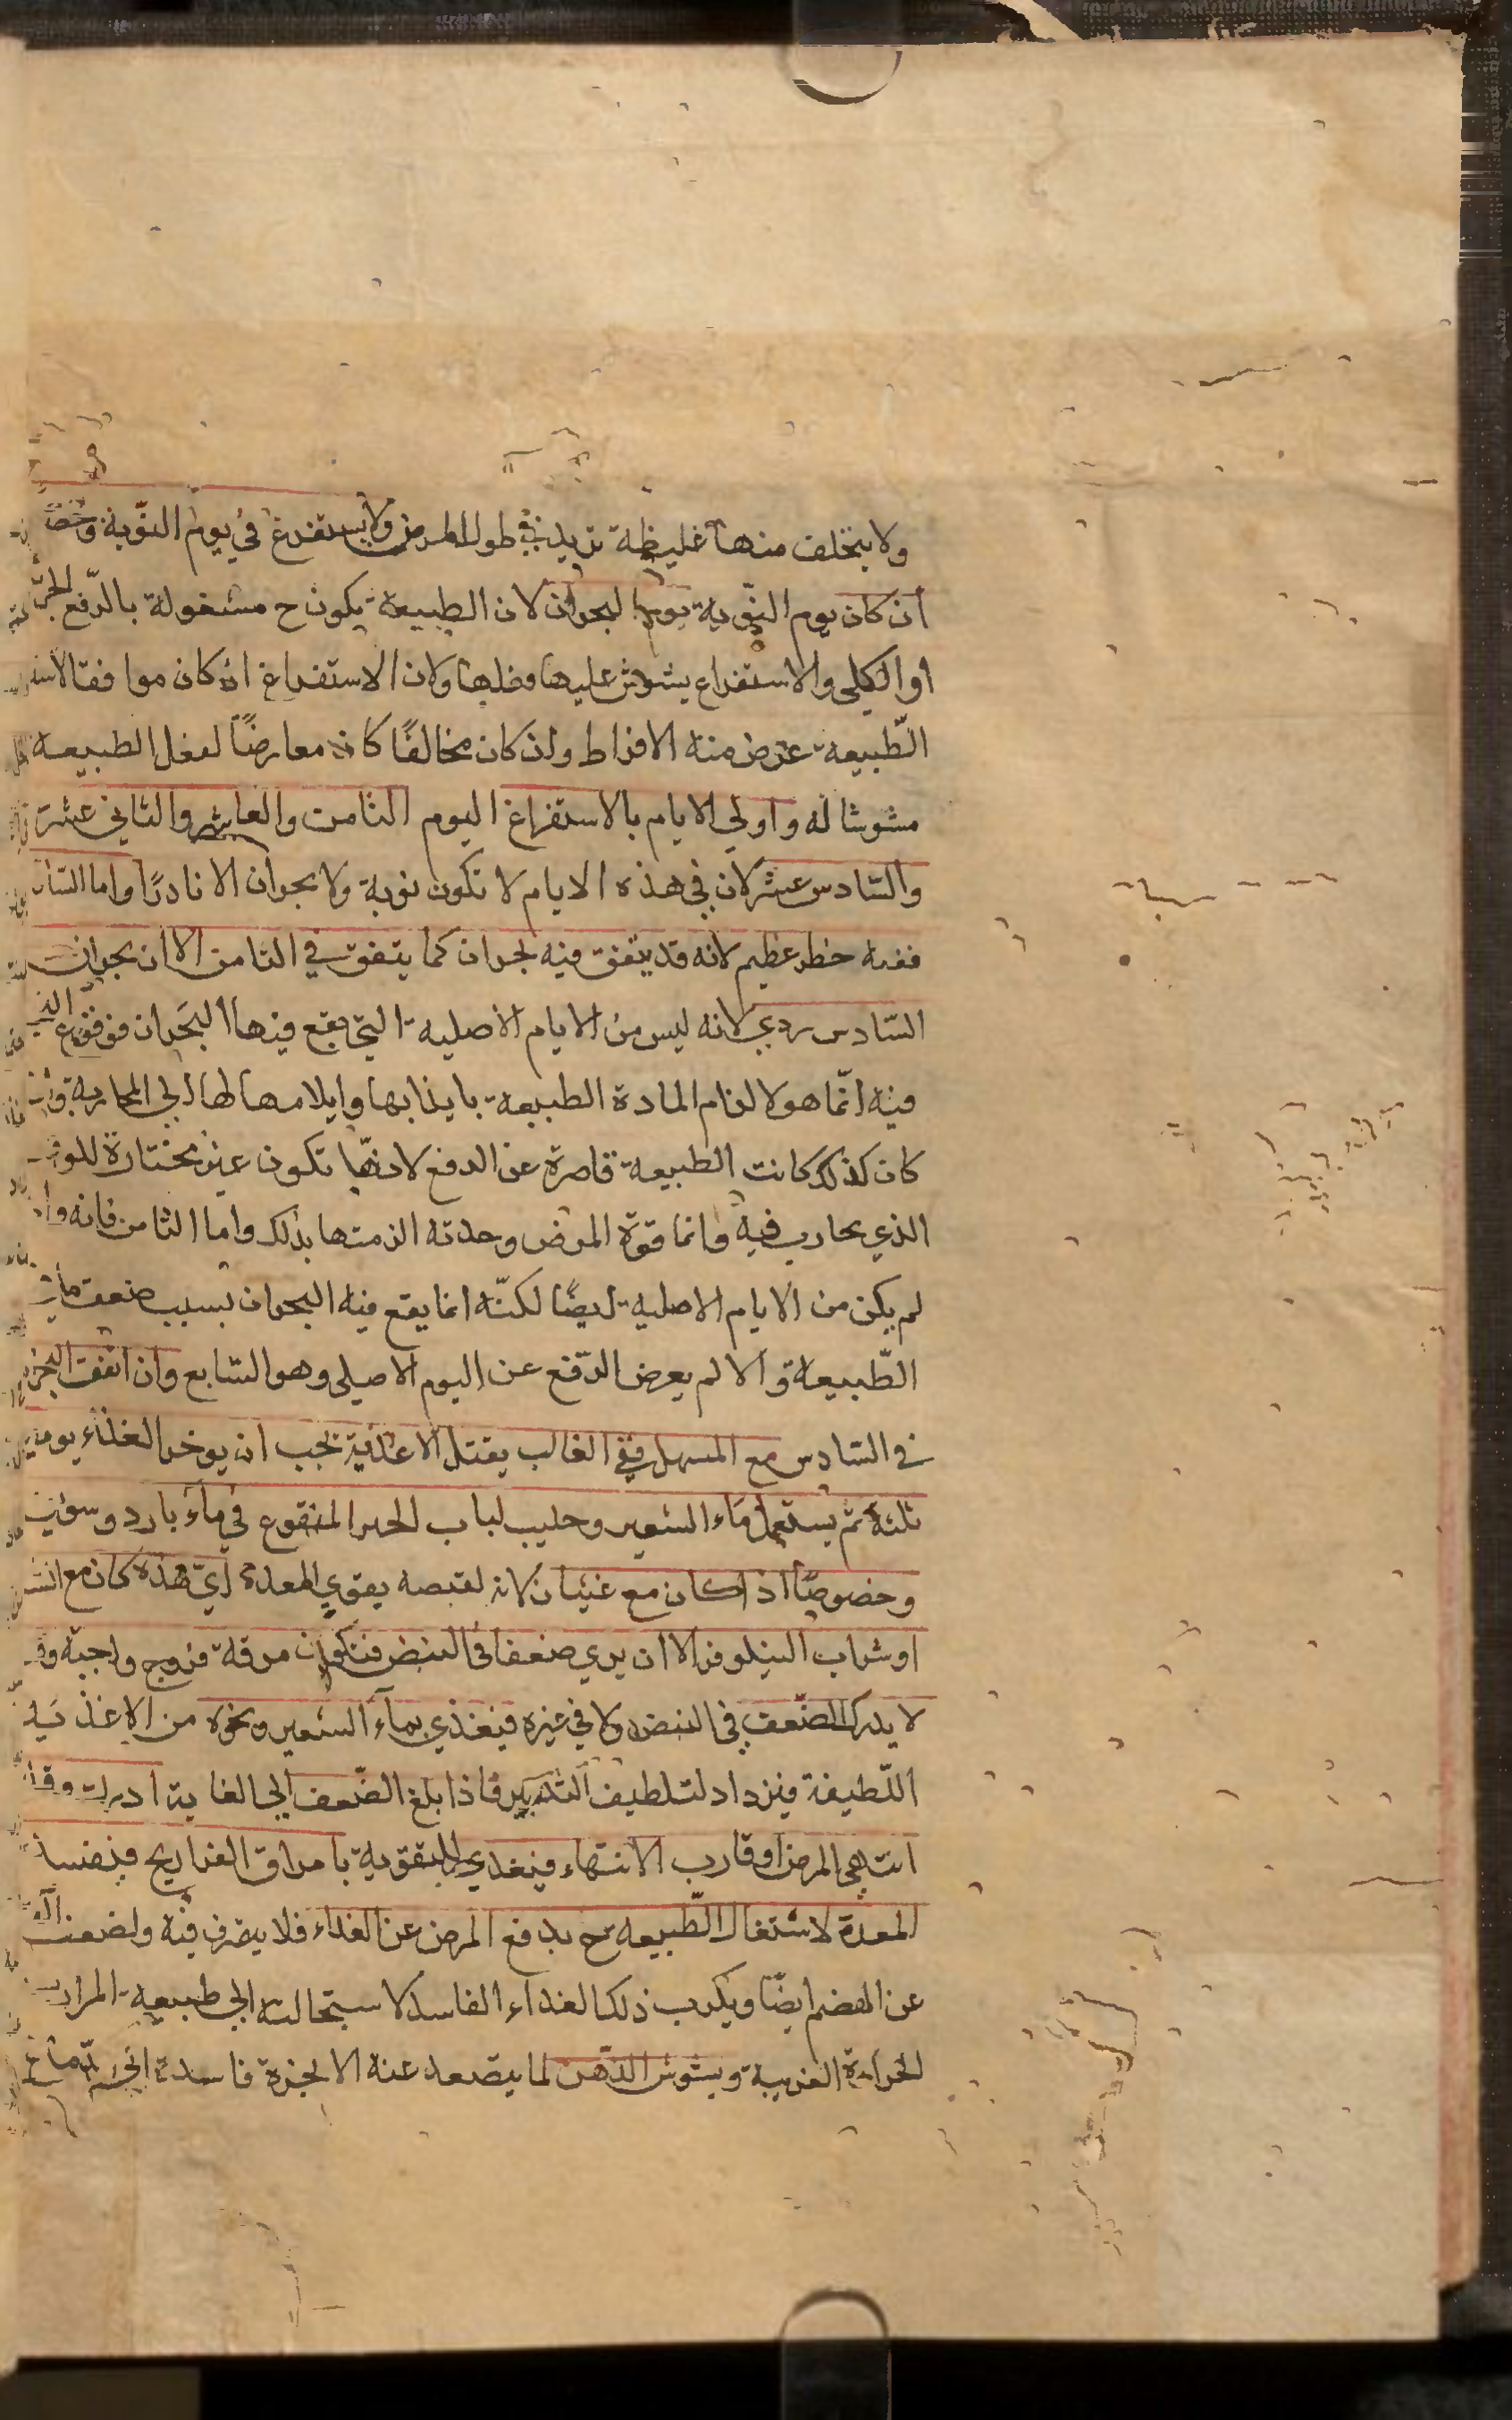 ولا يتخلف منها غليظة تزيد في طول المرض ولا يستفرغ في يوم النّوبة وخصّ
ان كان يوم النّوبة يوم البحران لان الطبيعة يكون ح مشغولة بالدّفع الجزئ
او الكلي والاستفراغ يشوش عليها فعلها ولان الاستفراغ ان كان موافقا لاسه
الطّبيعة عرض منه الافراط وان كان مخالفًا كان معارضًا لفعل الطبيعة
مشوشا له واولي الايام بالاستفراغ اليوم الثامن والعاشر والثاني عشر
والسّادس عشر لان في هذه الايام لا تكون نوبة ولا بحران الا نادرًا واما السّاد
ففيه خطر عظيم لانه قد يتفق فيه بحران كما يتفق في الثامن الا ان بحران
السّادس ردي لانه ليس من الايام الاصلية التي يقع فيها البحَران فوقوع الذي
فيه انّما هو لالزام المادة الطبيعة بايذايها وايلامها لها الي المحاربة وان
كان كذلك كانت الطبيعة قاصرة عن الدفع لانها تكون غير مختارة للوقت
الذي يحارب فيه وانما قوة المرض وحدته الزمتها بذلك واما الثامن فانه وان
لم يكن من الايام الاصلية ايضًا لكنّه انما يقع فيه البحران بسبب ضعف ما في
الطّبيعة والا لم يعرض الدّفع عن اليوم الاصلي وهو السّابع وان اتفق البحران
في السّادس مع المسهل ففي الغالب يقتل الاغذية يجب ان يوخر الغذاء يومين
ثلثة ثم يستعمل ماء الشعير وحليب لباب الخبز المنقوع في ماء بارد وسويق
وخصوصًا اذا كان مع غثيان لانه لقبضه يقوي المعدة ايّ هذه كان مع الشر
او شراب النيلوفر الا ان يري ضعفا في النبض فتكون مرقة فروج واجبة وقد
لا يدرك الضّعف في النبض ولا في غيره فيغذي بماء الشعير ونحوه من الاغذية
اللّطيفة فيزداد لتلطيف التّدبير فاذا بلغ الضّعف الي الغاية ادرك وقد
انتهي المرض او قارب الانتهاء فيغذي للتقوية بامراق الفراريج فيفسد
المعدة لاشتغال الطّبيعة ح بدفع المرض عن الغذاء فلا يتصرف فيه ولضعف الآلة
عن الهضم ايضًا ويكرب ذلك الغذاء الفاسد لاستحالته الي طبيعة المرار
الحرارة الغريبة ويشوش الذّهن لما يتصعد عنه الابخرة فاسدة الي الدّماغ